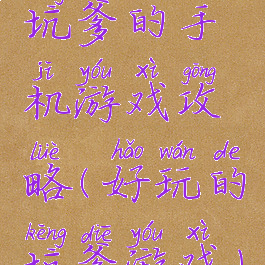 坑爹的手
jī yóu xì gōng
机游戏攻
lüè hǎo wán de
略(好玩的
kēng diē yóu xì
坑爹游戏)